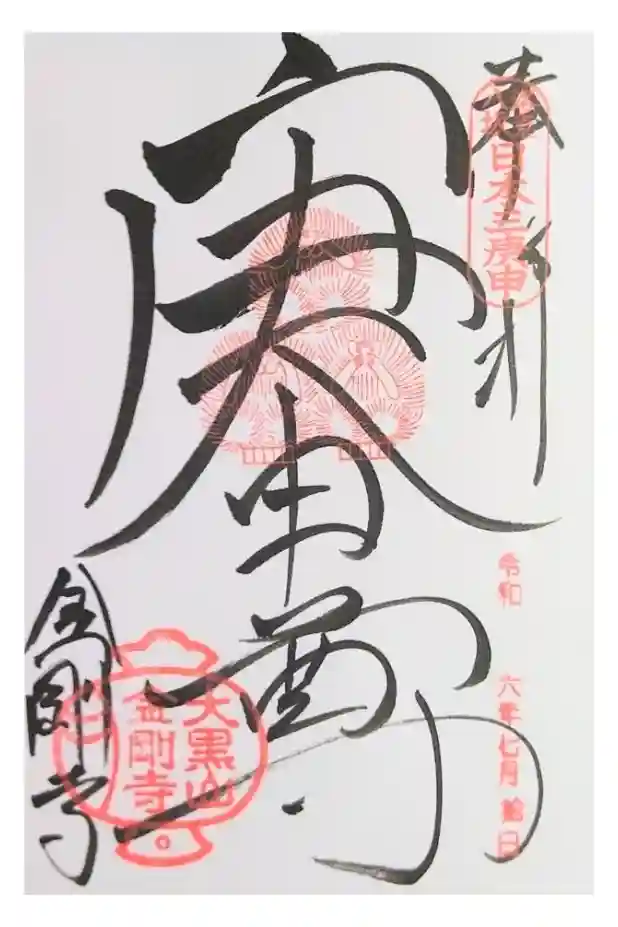 奉拝
日本三庚申
令和 六年 七月 日
庚申尊
大黒山
金剛寺
金剛寺